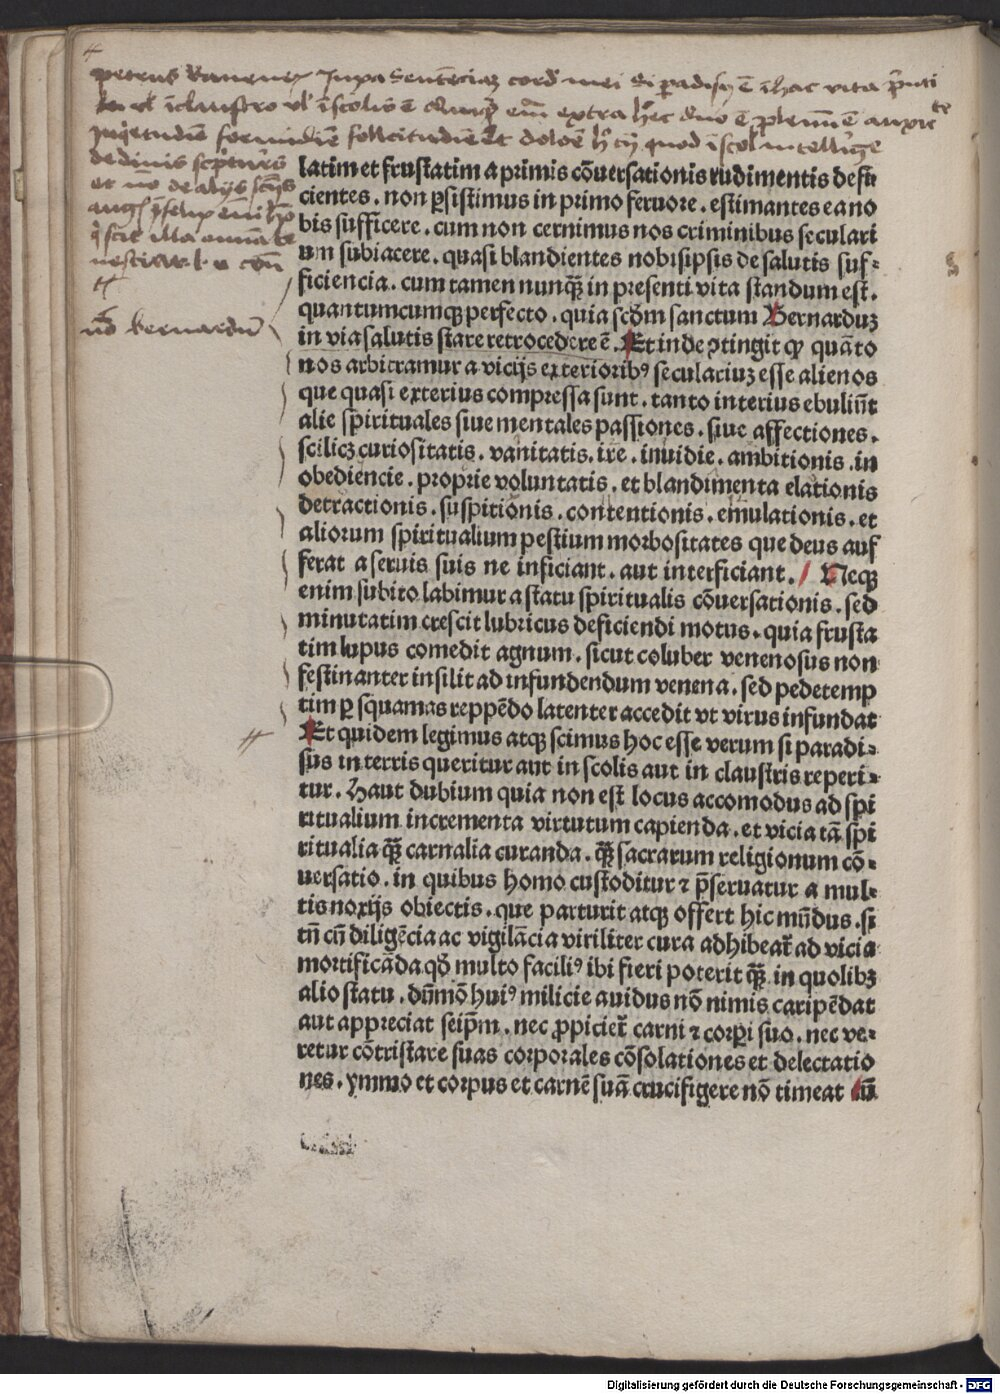 petrus Ravenen Juxta Sentenciaz cordis mei Si padisus ē ī hac vita
vl ī claustro vl ī scolis ē extra hec duo ē plenum ē
formidīe sollicitudīe et dolore quod ī scol intellige
de divinis scpturis
et nō de alijs scijs
nō bernardū
latim et frustatim a primis cōuersationis rudimentis defi
cientes . non ꝑsistimus in primo feruore . estimantes ea no
bis sufficere . cum non cernimus nos criminibus seculari
um subiacere . quasi blandientes nobisipsis de salutis suf⸗
ficiencia . cum tamen nunqᷓ in presenti vita standum est .
quantumcumqꝫ perfecto . quia scďm sanctum Bernarduꝫ
in via salutis stare retrocedere ē . Et inde ꝯtingit ꝙ quāto
nos arbitramur a vicijs exterioribꝰ seculariuꝫ esse alienos
que quasi exterius compressa sunt . tanto interius ebuliūt
alie spirituales siue mentales passiones . siue affectiones .
scilicꝫ curiositatis . vanitatis . ire . inuidie . ambitionis . in
obediencie . proprie voluntatis . et blandimenta elationis
detractionis . suspitionis . contentionis . emulationis . et
aliorum spiritualium pestium morbositates que deus auf
ferat a seruis suis ne inficiant . aut interficiant . / Necqꝫ
enim subito labimur a statu spiritualis cōuersationis . sed
minutatim crescit lubricus deficiendi motus . quia frusta
tim lupus comedit agnum . sicut coluber venenosus non
festinanter insilit ad infundendum venena . sed pedetemp
tim ꝑ squamas reppēdo latenter accedit vt virus infundat
Et quidem legimus atqꝫ scimus hoc esse verum si paradi⸗
sus in terris queritur aut in scolis aut in claustris reperi⸗
tur . Haut dubium quia non est locus accomodus ad spi
ritualium incrementa virtutum capienda . et vicia tā spi
ritualia qᷓ carnalia curanda . qᷓ sacrarum religionum cō⸗
uersatio . in quibus homo custoditur ⁊ p̄seruatur a mul⸗
tis noxijs obiectis . que parturit atqꝫ offert hic mūdus . si
tn̄ cū diligēcia ac vigilācia viriliter cura adhibeat̄ ad vicia
mortificāda qď multo faciliꝰ ibi fieri poterit qᷓ in quolibꝫ
alio statu . dūmō huiꝰ milicie auidus nō nimis caripēdat
aut appreciat seip̄m . nec ꝓpiciet̄ carni ⁊ corꝑi suo . nec ve⸗
retur cōtristare suas corporales cōsolationes et delectatio
nes . ymmo et corpus et carnē suā crucifigere nō timeat cū
Digitalisierung gefördert durch die Deutsche Forschungsgemeinschaft - DFG